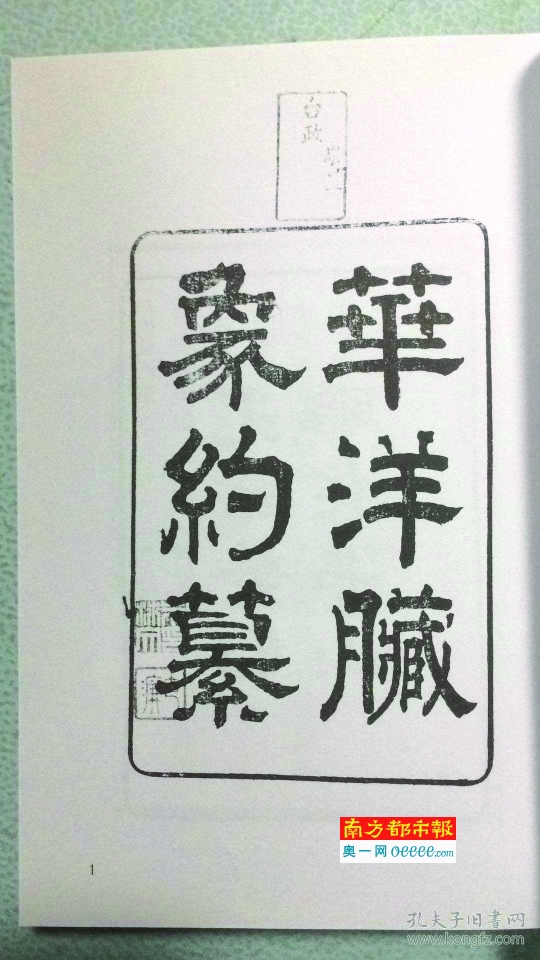 台政
華洋臟
象約纂
1
南方都市報
奥一网 oeeee.com
孔夫子旧書网
www.kongfz.com